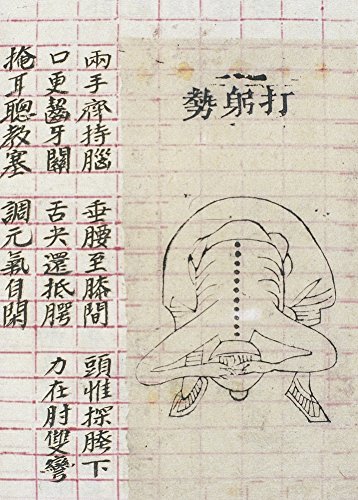 打躬勢
兩手齊持腦 垂腰至膝間 頭惟探胯下
口更齧牙關 舌尖還抵腭 力在肘雙彎
掩耳聰教塞 調元氣自閑